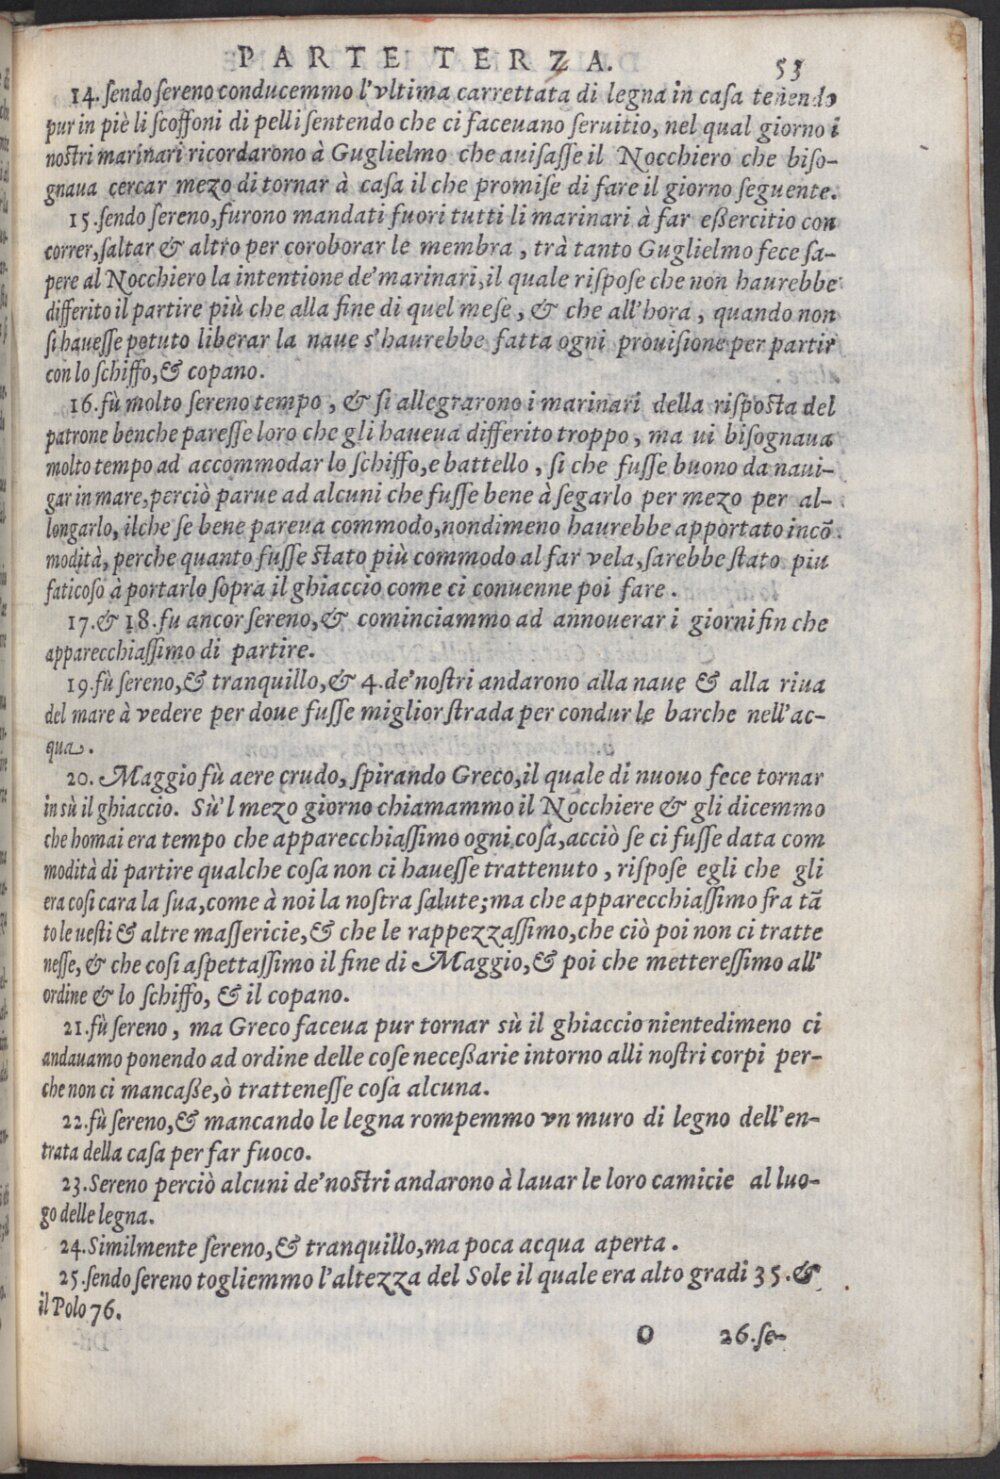 PARTE TERZA. 53
14. ſendo ſereno conducemmo l'vltima carrettata di legna in caſa tenendo
pur in piè li scoffoni di pelli ſentendo che ci faceuano ſeruitio, nel qual giorno i
noſtri marinari ricordarono à Guglielmo che auiſaſſe il Nocchiero che biſo-
gnaua cercar mezo di tornar à caſa il che promiſe di fare il giorno ſeguente.
15. ſendo ſereno, furono mandati fuori tutti li marinari à far eßercitio con
correr, ſaltar & altro per coroborar le membra, trà tanto Guglielmo fece ſa-
pere al Nocchiero la intentione de' marinari, il quale riſpoſe che non haurebbe
differito il partire più che alla fine di quel meſe, & che all'hora, quando non
ſi haueſſe potuto liberar la naue s'haurebbe fatta ogni prouiſione per partir
con lo ſchiffo, & copano.
16. fù molto ſereno tempo, & ſi allegrarono i marinari della riſpoſta del
patrone benche pareſſe loro che gli haueua differito troppo, ma ui biſognaua
molto tempo ad accommodar lo ſchiffo, e battello, ſi che fuſſe buono da naui-
gar in mare, perciò parue ad alcuni che fuſſe bene à ſegarlo per mezo per al-
longarlo, ilche ſe bene pareua commodo, nondimeno haurebbe apportato incõ
modità, perche quanto fuſſe ſtato più commodo al far vela, ſarebbe ſtato piu
faticoſo à portarlo ſopra il ghiaccio come ci conuenne poi fare.
17. & 18. fu ancor ſereno, & cominciammo ad annouerar i giorni fin che
apparecchiaſſimo di partire.
19. fù ſereno, & tranquillo, & 4. de' noſtri andarono alla naue & alla riua
del mare à vedere per doue fuſſe miglior ſtrada per condur le barche nell'ac-
qua.
20. Maggio fù aere crudo, ſpirando Greco, il quale di nuouo fece tornar
in sù il ghiaccio. Sù'l mezo giorno chiamammo il Nocchiere & gli dicemmo
che homai era tempo che apparecchiaſſimo ogni coſa, acciò ſe ci fuſſe data com
modità di partire qualche coſa non ci haueſſe trattenuto, riſpoſe egli che gli
era coſi cara la ſua, come à noi la noſtra ſalute; ma che apparecchiaſſimo fra tã
to le ueſti & altre maſſericie, & che le rappezzaſſimo, che ciò poi non ci tratte
neſſe, & che coſi aſpettaſſimo il fine di Maggio, & poi che metereſſimo all'
ordine & lo ſchiffo, & il copano.
21. fù ſereno, ma Greco faceua pur tornar sù il ghiaccio nientedimeno ci
andauamo ponendo ad ordine delle coſe neceßarie intorno alli noſtri corpi per-
che non ci mancaße, ò tratteneſſe coſa alcuna.
22. fù ſereno, & mancando le legna rompemmo vn muro di legno dell'en-
trata della caſa per far fuoco.
23. Sereno perciò alcuni de' noſtri andarono à lauar le loro camicie al luo-
go delle legna.
24. Similmente ſereno, & tranquillo, ma poca acqua aperta.
25. ſendo ſereno togliemmo l'altezza del Sole il quale era alto gradi 35. &
il Polo 76.
O 26. ſe-